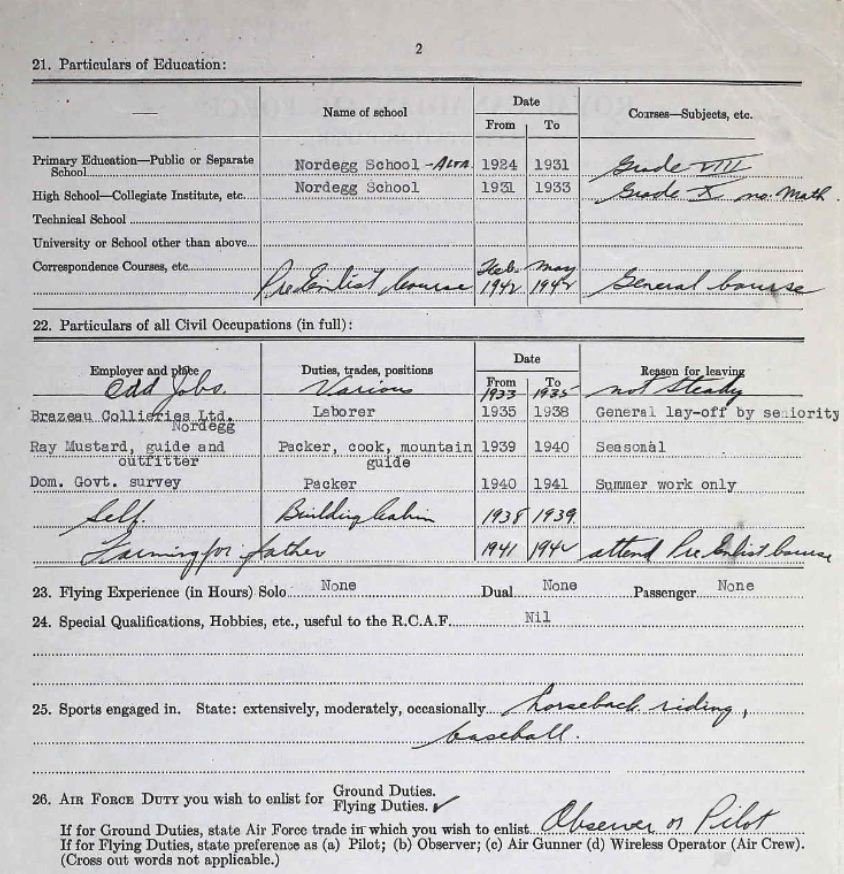 2
21. Particulars of Education:
Name of school Date Courses—Subjects, etc.
From To
Primary Education—Public or Separate School Nordegg School - Alta. 1924 1931 Grade VIII
High School—Collegiate Institute, etc. Nordegg School 1931 1933 Grade X no Math.
Technical School
University or School other than above
Correspondence Courses, etc. Pre Enlist Course Feb. 1942 May 1942 General Course
22. Particulars of all Civil Occupations (in full):
Employer and place Duties, trades, positions Date Reason for leaving
From To
Odd Jobs. Various 1933 1935 not Steady
Brazeau Collieries Ltd. Nordegg Laborer 1935 1938 General lay-off by seniority
Ray Mustard, guide and outfitter Packer, cook, mountain guide 1939 1940 Seasonal
Dom. Govt. survey Packer 1940 1941 Summer work only
Self. Building Cabin 1938 1939
Farming for father 1941 1942 attend Pre Enlist Course
23. Flying Experience (in Hours) Solo None Dual None Passenger None
24. Special Qualifications, Hobbies, etc., useful to the R.C.A.F. Nil
25. Sports engaged in. State: extensively, moderately, occasionally horseback riding,
baseball.
26. AIR FORCE DUTY you wish to enlist for Ground Duties.
Flying Duties. ✓
If for Ground Duties, state Air Force trade in which you wish to enlist Observer or Pilot
If for Flying Duties, state preference as (a) Pilot; (b) Observer; (c) Air Gunner (d) Wireless Operator (Air Crew).
(Cross out words not applicable.)